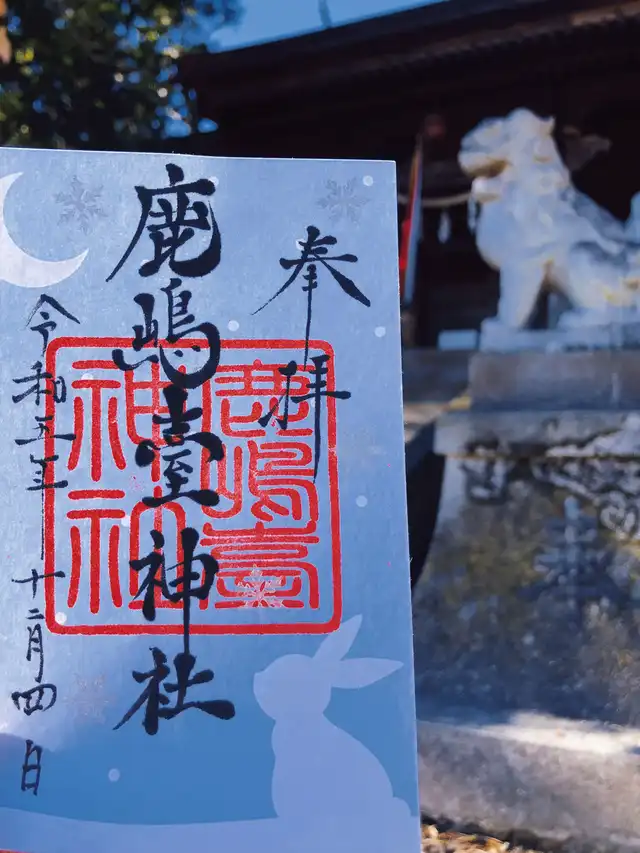 奉拝
鹿嶋臺神社
令和五年十二月四日
鹿嶋臺
神社